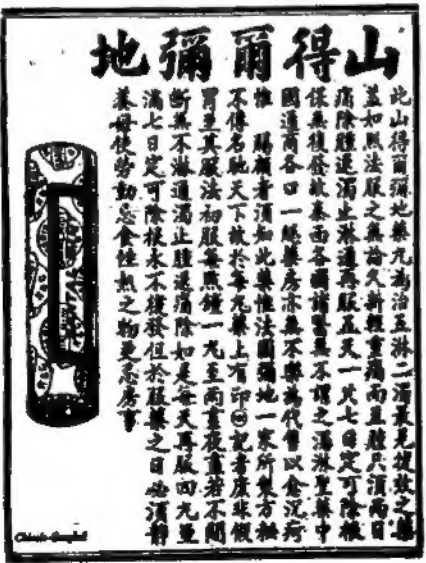 山得爾彌地
此山得爾彌地藥丸為治五淋二濁最見捷效之藥
蓋如照法服之無論久新輕重濁而且腫只須兩日
痛除腫退濁止淋通再服五天一共七日定可除根
保無復發故泰西各國諸醫無不謂之濁淋聖藥中
國通商各口一經藥房亦無不樂為代售以
惟 賜顧者須知此藥惟法國彌地一家所製方
不傳名馳天下故於每丸藥上有印記者庶非假
冒至其服法初服每點鐘一丸至兩晝夜晝若不間
斷無不淋通濁止腫退痛除如是每天再服四丸
滿七日定可除根永不復發但於服藥之日必須靜
養毋使勞動忌食熱之物更忌房事